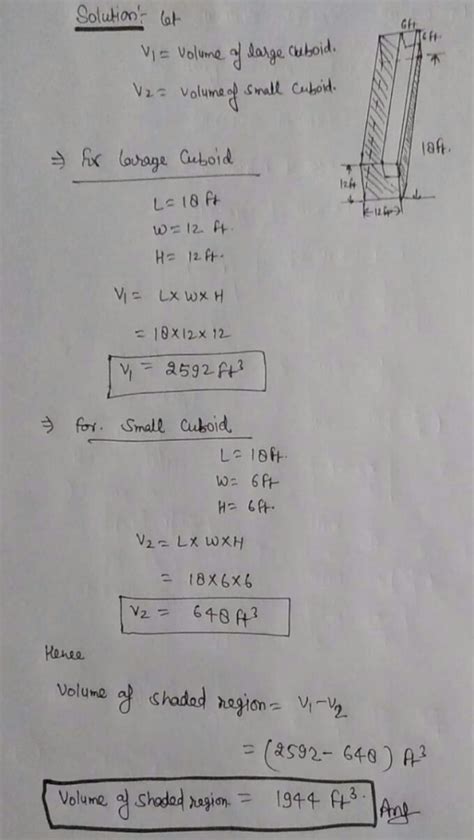 Solution:- let
V1 = Volume of large cuboid.
V2 = Volume of small Cuboid.
6ft
6ft.
18ft.
12ft
12ft
⇒ fix larage Cuboid
L = 18 ft
W = 12 ft.
H = 12 ft.
V1 = L×W×H
= 18×12×12
V1 = 2592 ft³
⇒ for. Small Cuboid
L = 18 ft.
W = 6ft
H = 6ft.
V2 = L×W×H
= 18×6×6
V2 = 648 ft³
Hence
Volume of shaded region = V1-V2
= (2592 - 648) ft³
Volume of shaded region = 1944 ft³. Ans